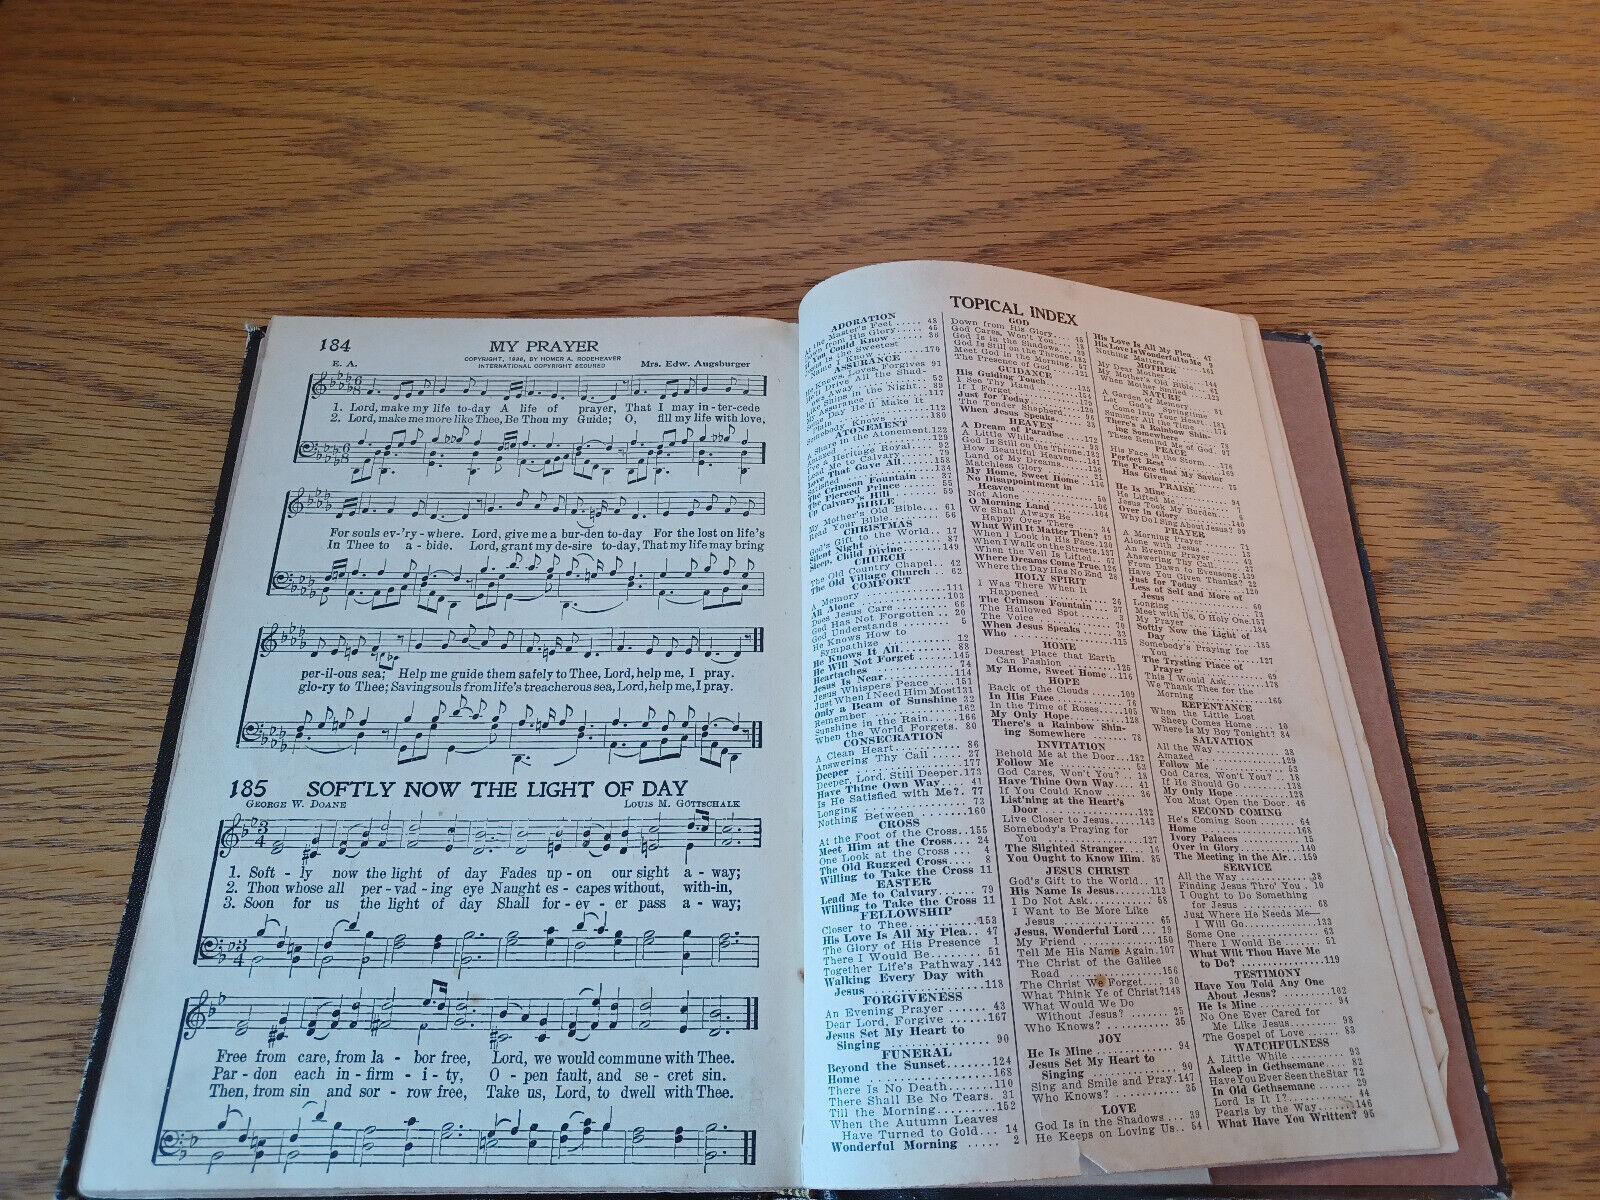 184
MY PRAYER
E. A.
COPYRIGHT, 1936, BY HOMER A. RODEHEAVER
INTERNATIONAL COPYRIGHT SECURED
Mrs. Edw. Augsburger
1. Lord, make my life to-day A life of prayer, That I may in - ter-cede
2. Lord, make me more like Thee, Be Thou my Guide; O, fill my life with love,
For souls ev-'ry - where. Lord, give me a bur-den to-day For the lost on life's
In Thee to a - bide. Lord, grant my de-sire to-day, That my life may bring
per-il-ous sea; Help me guide them safely to Thee, Lord, help me, I pray.
glo-ry to Thee; Saving souls from life's treacherous sea, Lord, help me, I pray.
185 SOFTLY NOW THE LIGHT OF DAY
GEORGE W. DOANE
LOUIS M. GOTTSCHALK
1. Soft - ly now the light of day Fades up - on our sight a - way;
2. Thou whose all per - vad - ing eye Naught es - capes without, with-in,
3. Soon for us the light of day Shall for - ev - er pass a - way;
Free from care, from la - bor free, Lord, we would commune with Thee.
Par - don each in - firm - i - ty, O - pen fault, and se - cret sin.
Then, from sin and sor - row free, Take us, Lord, to dwell with Thee.
TOPICAL INDEX
ADORATION
If You Could Know
ASSURANCE
ATONEMENT
Lead Me to Calvary
Love That Gave All
The Crimson Fountain
The Pierced Prince
Up Calvary's Hill
BIBLE
My Mother's Old Bible.. 61
Read Your Bible
CHRISTMAS
God's Gift to the World.. 17
Silent Night
Sleep, Child Divine.....149
CHURCH
The Old Country Chapel.. 42
The Old Village Church.. 62
COMFORT
A Memory ......111
All Alone ......103
Does Jesus Care ...... 66
God Has Not Forgotten .. 20
God Understands ...... 5
He Knows How to
Sympathize ...... 12
He Knows It All
He Will Not Forget .....145
Heartaches ...... 74
Jesus Is Near ......114
Jesus Whispers Peace ....151
Just When I Need Him Most121
Only a Beam of Sunshine
Remember ......162
Sunshine in the Rain....166
When the World Forgets. 80
CONSECRATION
A Clean Heart ...... 86
Answering Thy Call ..... 27
Deeper ......177
Deeper, Lord, Still Deeper.173
Have Thine Own Way... 41
Is He Satisfied with Me?. 77
Longing
Nothing Between ......160
CROSS
At the Foot of the Cross..155
Meet Him at the Cross... 24
One Look at the Cross ... 4
The Old Rugged Cross... 8
Willing to Take the Cross 11
EASTER
Lead Me to Calvary .... 79
Willing to Take the Cross 11
FELLOWSHIP
Closer to Thee......153
His Love Is All My Plea.. 47
The Glory of His Presence 1
There I Would Be...... 51
Together Life's Pathway.142
Walking Every Day with
Jesus ......118
FORGIVENESS
An Evening Prayer ..... 43
Dear Lord, Forgive .....167
Jesus Set My Heart to
Singing ...... 90
FUNERAL
Beyond the Sunset......124
Home ......168
There Is No Death......110
There Shall Be No Tears. 31
Till the Morning......152
When the Autumn Leaves
Have Turned to Gold... 14
Wonderful Morning ..... 2
GOD
Down from His Glory
God Cares, Won't You
God Is in the Shadows
God Is Still on the Throne
Meet God in the Morning
The Presence of God
GUIDANCE
His Guiding Touch
I See Thy Hand
If I Forget
Just for Today
The Tender Shepherd
When Jesus Speaks
HEAVEN
A Dream of Paradise
A Little While
God Is Still on the Throne
How Beautiful Heaven
Land of My Dreams
Matchless Glory
My Home, Sweet Home
No Disappointment in
Heaven
Not Alone
O Morning Land
We Shall Always Be
Happy Over There
What Will It Matter Then?
When I Look in His Face
When I Walk on the Streets
When the Veil Is Lifted
Where Dreams Come True
Where the Day Has No End
HOLY SPIRIT
I Was There When It
Happened
The Crimson Fountain
The Hallowed Spot
The Voice
When Jesus Speaks
Who
HOME
Dearest Place that Earth
Can Fashion
My Home, Sweet Home
HOPE
Back of the Clouds .....109
In His Face ...... 76
In the Time of Roses....105
My Only Hope......128
There's a Rainbow Shin-
ing Somewhere ...... 78
INVITATION
Behold Me at the Door...182
Follow Me ...... 53
God Cares, Won't You? . 18
Have Thine Own Way... 41
If You Could Know
List'ning at the Heart's
Door ......132
Live Closer to Jesus.....143
Somebody's Praying for
You ......127
The Slighted Stranger .. 16
You Ought to Know Him. 85
JESUS CHRIST
God's Gift to the World.. 17
His Name Is Jesus......113
I Do Not Ask ...... 58
I Want to Be More Like
Jesus ...... 65
Jesus, Wonderful Lord .. 19
My Friend ......150
Tell Me His Name Again.107
The Christ of the Galilee
Road ......156
The Christ We Forget.... 30
What Think Ye of Christ?148
What Would We Do
Without Jesus? ...... 25
Who Knows? ...... 35
JOY
He Is Mine ...... 94
Jesus Set My Heart to
Singing ...... 90
Sing and Smile and Pray.147
Who Knows? ...... 35
LOVE
God Is in the Shadows .. 39
He Keeps on Loving Us.. 54
His Love Is All My Plea.. 47
His Love Is Wonderful to Me
Nothing Matters
MOTHER
My Dear Mother
My Mother's Old Bible
When Mother Smiled
NATURE
A Garden of Memory
Let God's Springtime
Come Into Your Heart
Summer All the Time
There's a Rainbow Shin-
ing Somewhere
These Remind Me of God
PEACE
His Face in the Storm
Perfect Rest
The Peace that My Savior
Has Given
PRAISE
He Is Mine
He Lifted Me
Jesus Took My Burden
Over in Glory
Why Do I Sing About Jesus?
PRAYER
A Morning Prayer
Alone with Jesus
An Evening Prayer
Answering Thy Call
From Dawn to Evensong
Have You Given Thanks?
Just for Today
Less of Self and More of
Jesus
Longing
Meet with Us, O Holy One.157
My Prayer ......184
Softly Now the Light of
Day ......185
Somebody's Praying for
You ......127
The Trysting Place of
Prayer ...... 69
This I Would Ask ......178
We Thank Thee for the
Morning ......165
REPENTANCE
When the Little Lost
Sheep Comes Home ... 10
Where Is My Boy Tonight? 84
SALVATION
All the Way ...... 38
Amazed ......129
Follow Me ...... 53
God Cares, Won't You? . 18
If He Should Go......138
My Only Hope ......128
You Must Open the Door. 46
SECOND COMING
He's Coming Soon ...... 64
Home ......168
Ivory Palaces ...... 15
Over in Glory ......140
The Meeting in the Air...159
SERVICE
All the Way ...... 38
Finding Jesus Thro' You . 10
I Ought to Do Something
for Jesus ...... 68
Just Where He Needs Me—
I Will Go......133
Some One ...... 63
There I Would Be ...... 51
What Wilt Thou Have Me
to Do? ......119
TESTIMONY
Have You Told Any One
About Jesus? ......102
He Is Mine ...... 94
No One Ever Cared for
Me Like Jesus...... 98
The Gospel of Love ..... 83
WATCHFULNESS
A Little While ...... 93
Asleep in Gethsemane ... 82
Have You Ever Seen the Star 72
In Old Gethsemane ..... 29
Lord Is It I? ...... 44
Pearls by the Way......146
What Have You Written? 95